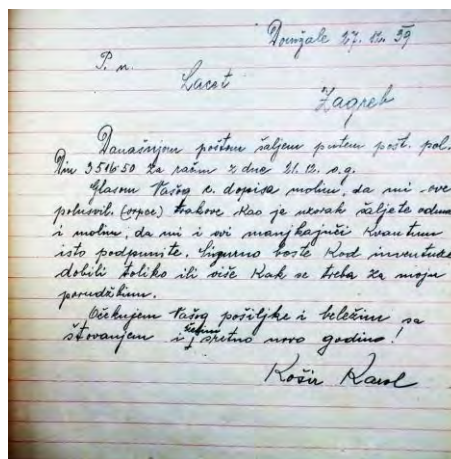 Domžale 27. 12. 39
P. n.
Lacet
Zagreb
Današnjom poštom šaljem putem post. pol.
Din 3516.50 za račun z dne 21.12. o.g.
Glasom Vašog c. dopisa molim, da mi ove
polusvil. (crpee) trakove kao je uzorak šaljete odma
i molim, da mi i ovi manjkajući kvantum
isto podpunite. Sigurno boste kod inventure
dobili toliko ili više kak se treba za moju
porudžbinu.
Očekujem Vašog pošiljke i beležim sa
štovanjem i želim sretno novo godino!
Košir Karol